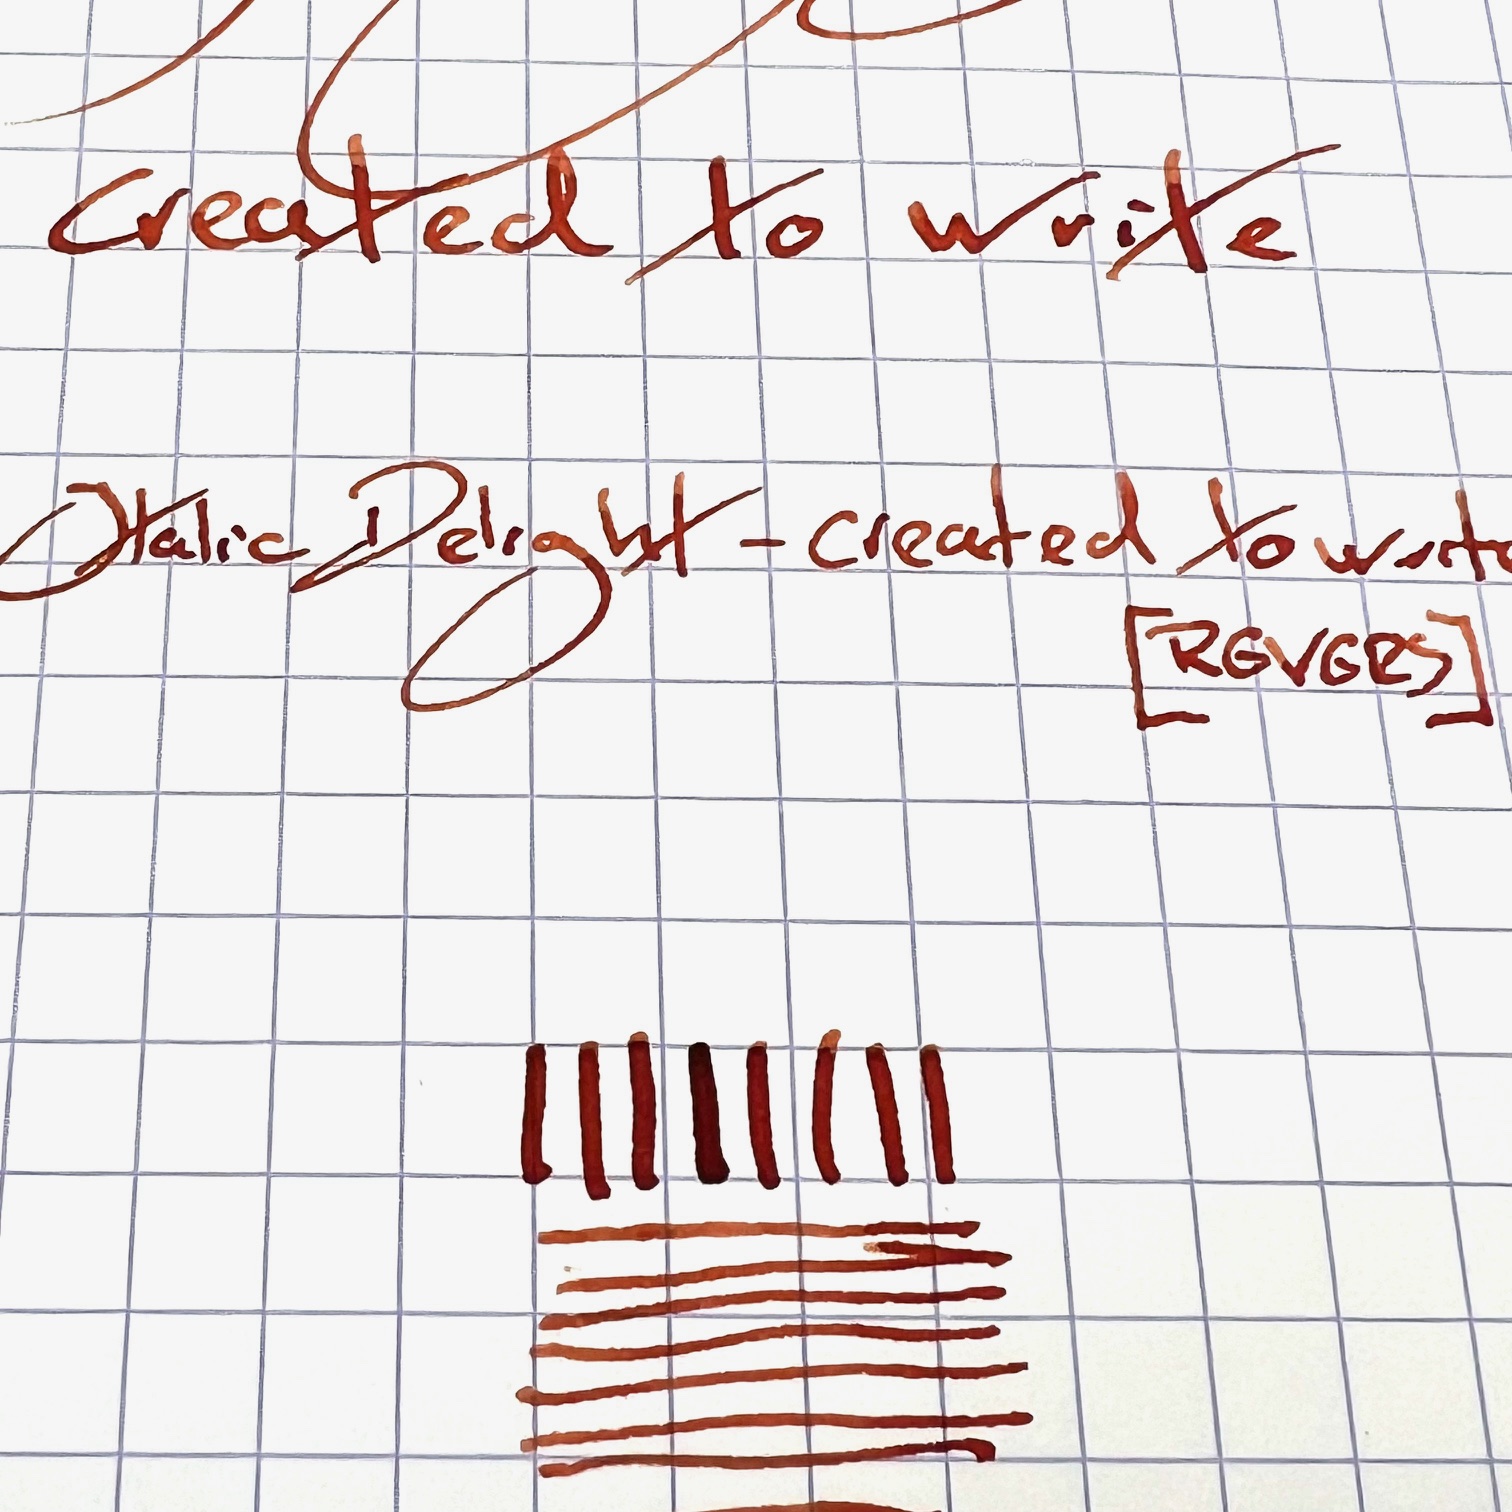 created to write
Italic Delight - created to write
[RGVGRS]